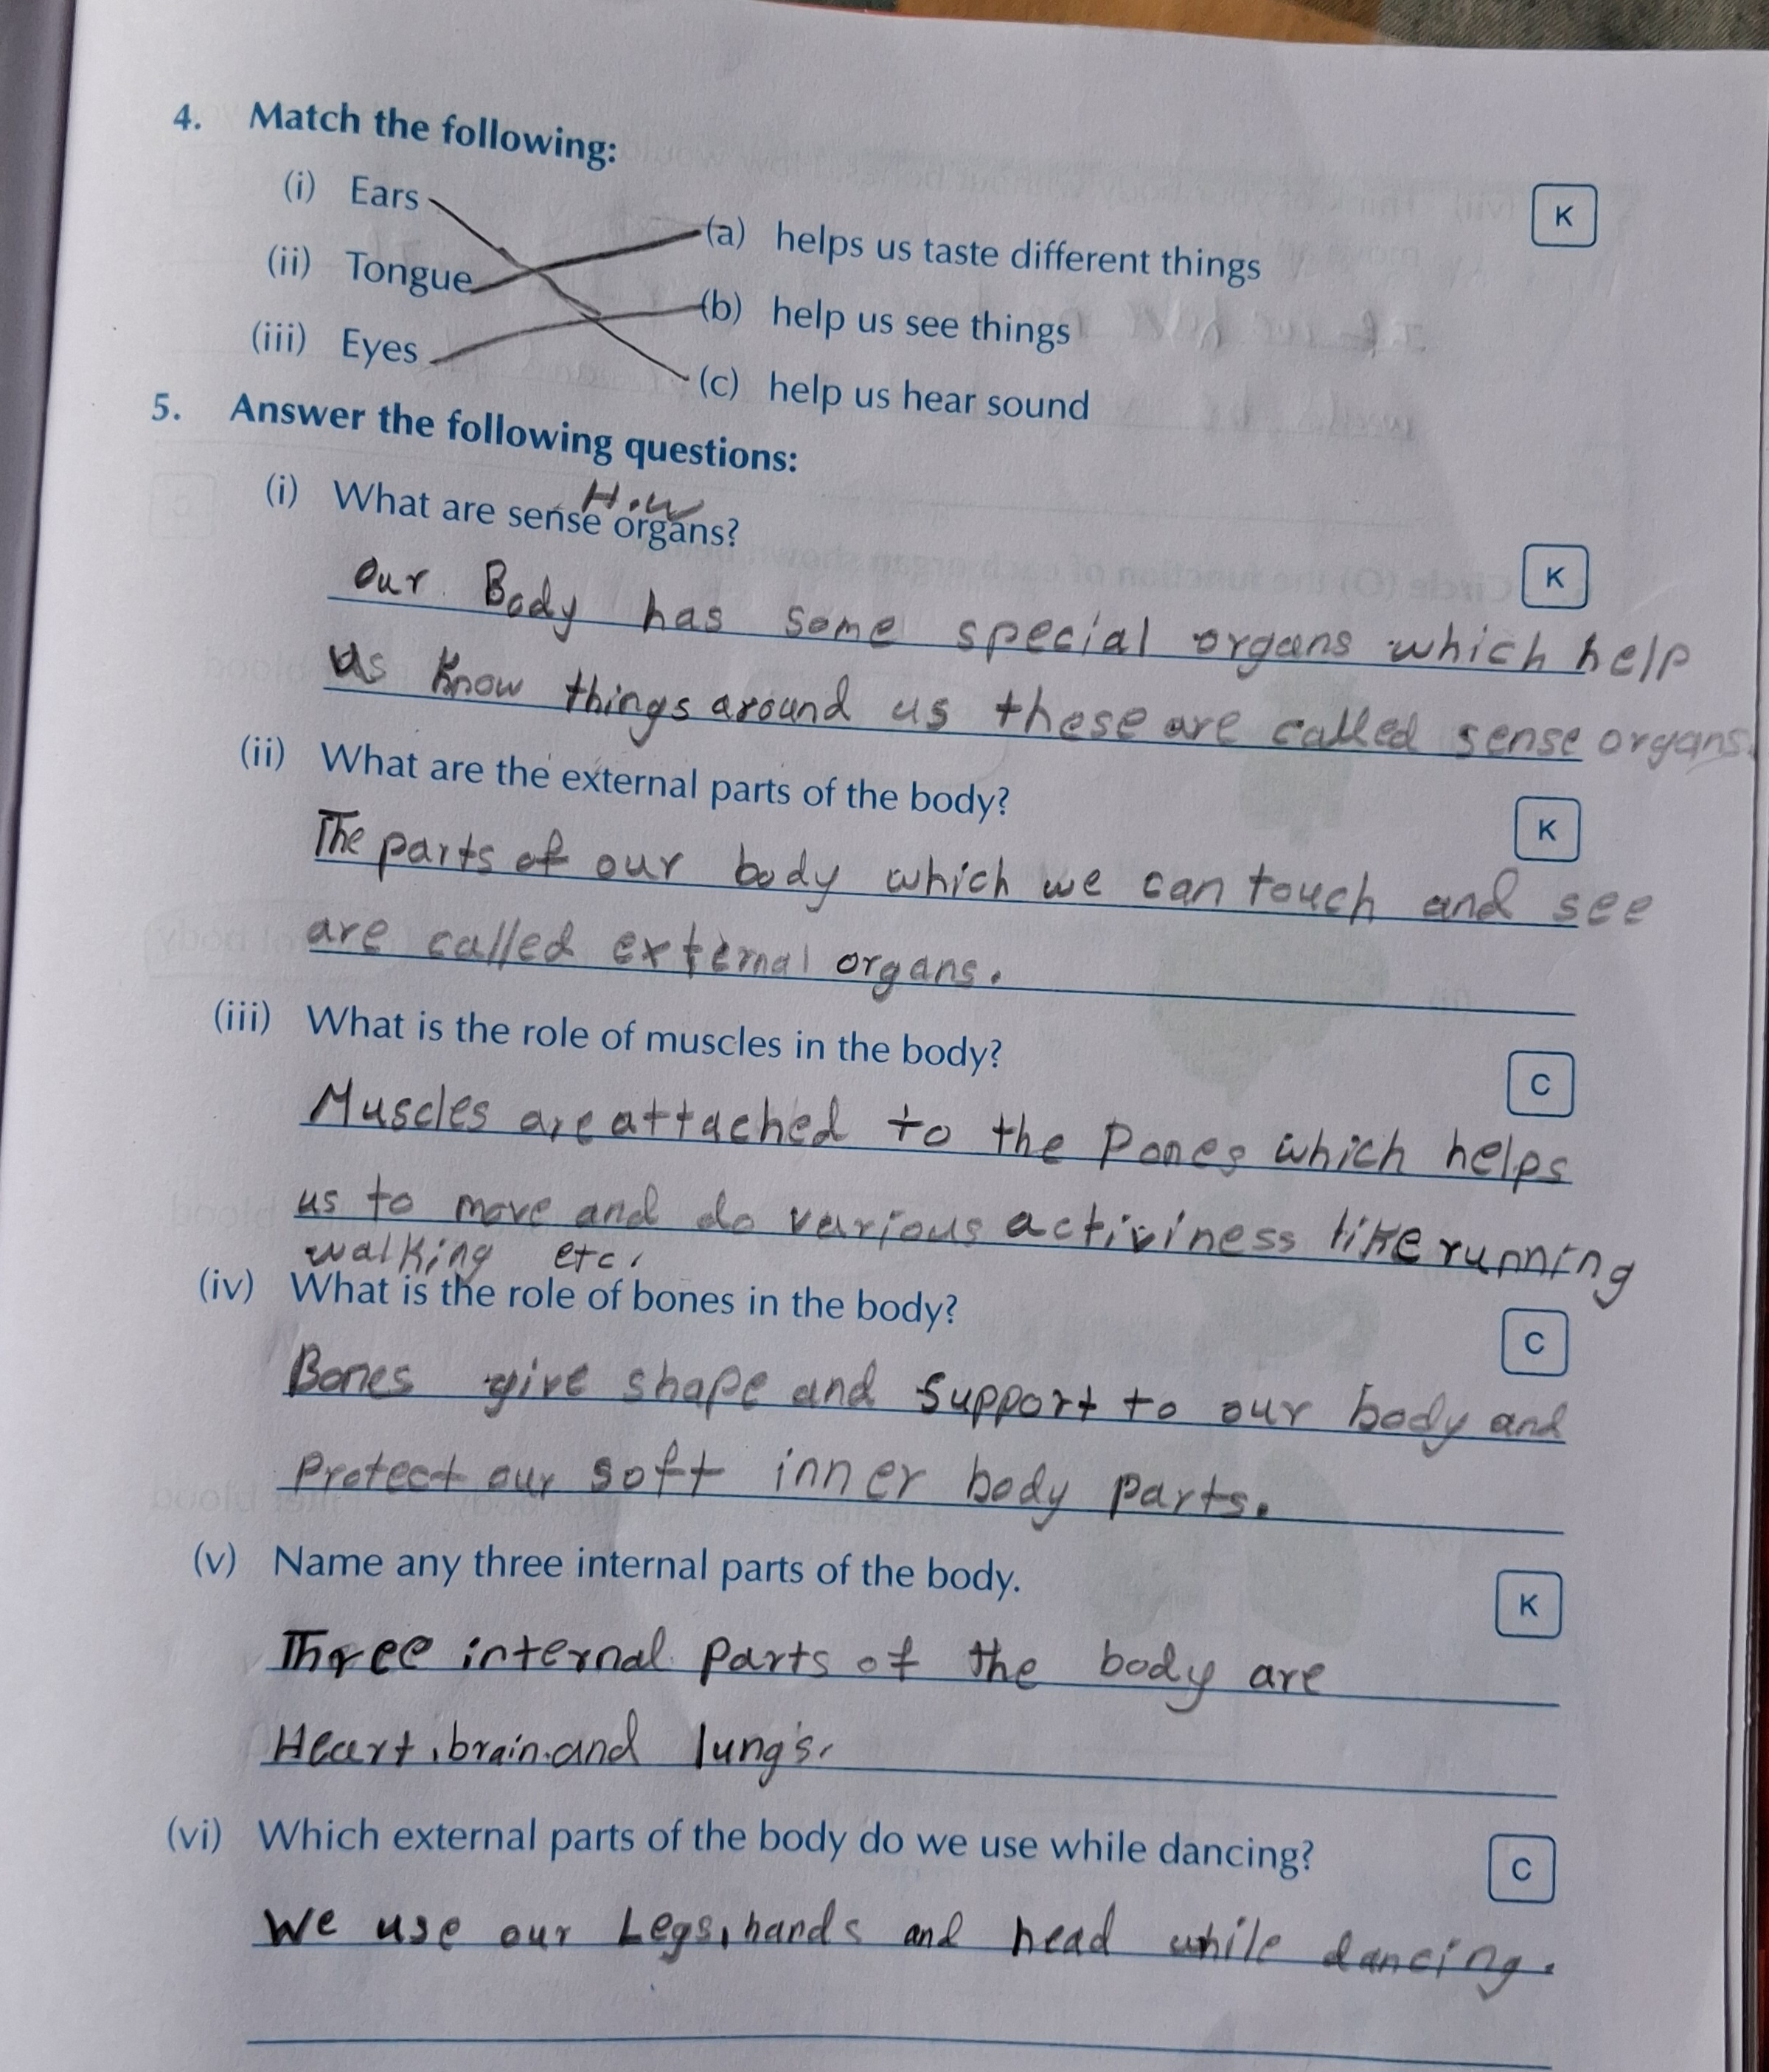 4. Match the following:
K
(i) Ears
(a) helps us taste different things
(ii) Tongue
(b) help us see things
(iii) Eyes
(c) help us hear sound
5. Answer the following questions:
H.W
(i) What are sense organs?
K
Our Body has some special organs which help
us know things around us these are called sense organs.
(ii) What are the external parts of the body?
K
The parts of our body which we can touch and see
are called external organs.
(iii) What is the role of muscles in the body?
C
Muscles are attached to the Pones which helps
us to move and do various activiness like running
walking etc.
(iv) What is the role of bones in the body?
C
Bones give shape and support to our body and
Protect our soft inner body parts.
(v) Name any three internal parts of the body.
K
Three internal Parts of the body are
Heart, brain and lungs.
(vi) Which external parts of the body do we use while dancing?
C
We use our Legs, hands and head while dancing.